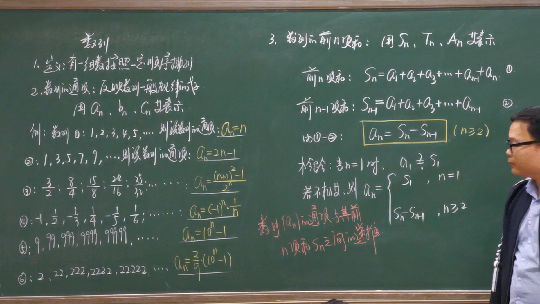 数列
1. 定义: 有一组数按照一定次序排列
2. 数列的通项: 反映数列一般规律的
用 aₙ、bₙ、Cₙ 来表示
例: 数列①: 1, 2, 3, 4, 5, … 则该数列的通项: aₙ=n
②: 1, 3, 5, 7, 9, … 则该数列的通项: aₙ=2n-1
③: 3/2, 8/4, 15/8, …… aₙ=((n+1)²-1)/2ⁿ
④: -1, 1/2, -1/3, 1/4, -1/5, 1/6; …… aₙ=(-1)ⁿ·1/n
⑤: 9, 99, 999, 9999, 99999, …… aₙ=10ⁿ-1
⑥: 2, 22, 222, 2222, 22222 … aₙ=2/9·(10ⁿ-1)
3. 数列的前n项和: 用 Sₙ、Tₙ、Aₙ 来表示
前n项和: Sₙ=a₁+a₂+a₃+…+aₙ₋₁+aₙ ①
前n-1项和: Sₙ₋₁=a₁+a₂+a₃+…+aₙ₋₁ ②
由①-②: aₙ=Sₙ-Sₙ₋₁ (n≥2)
检验: 当n=1时, a₁ = S₁
若不相等, 则 aₙ= { S₁ , n=1
Sₙ-Sₙ₋₁ , n≥2
数列{aₙ}的通项与其前
n项和Sₙ之间的